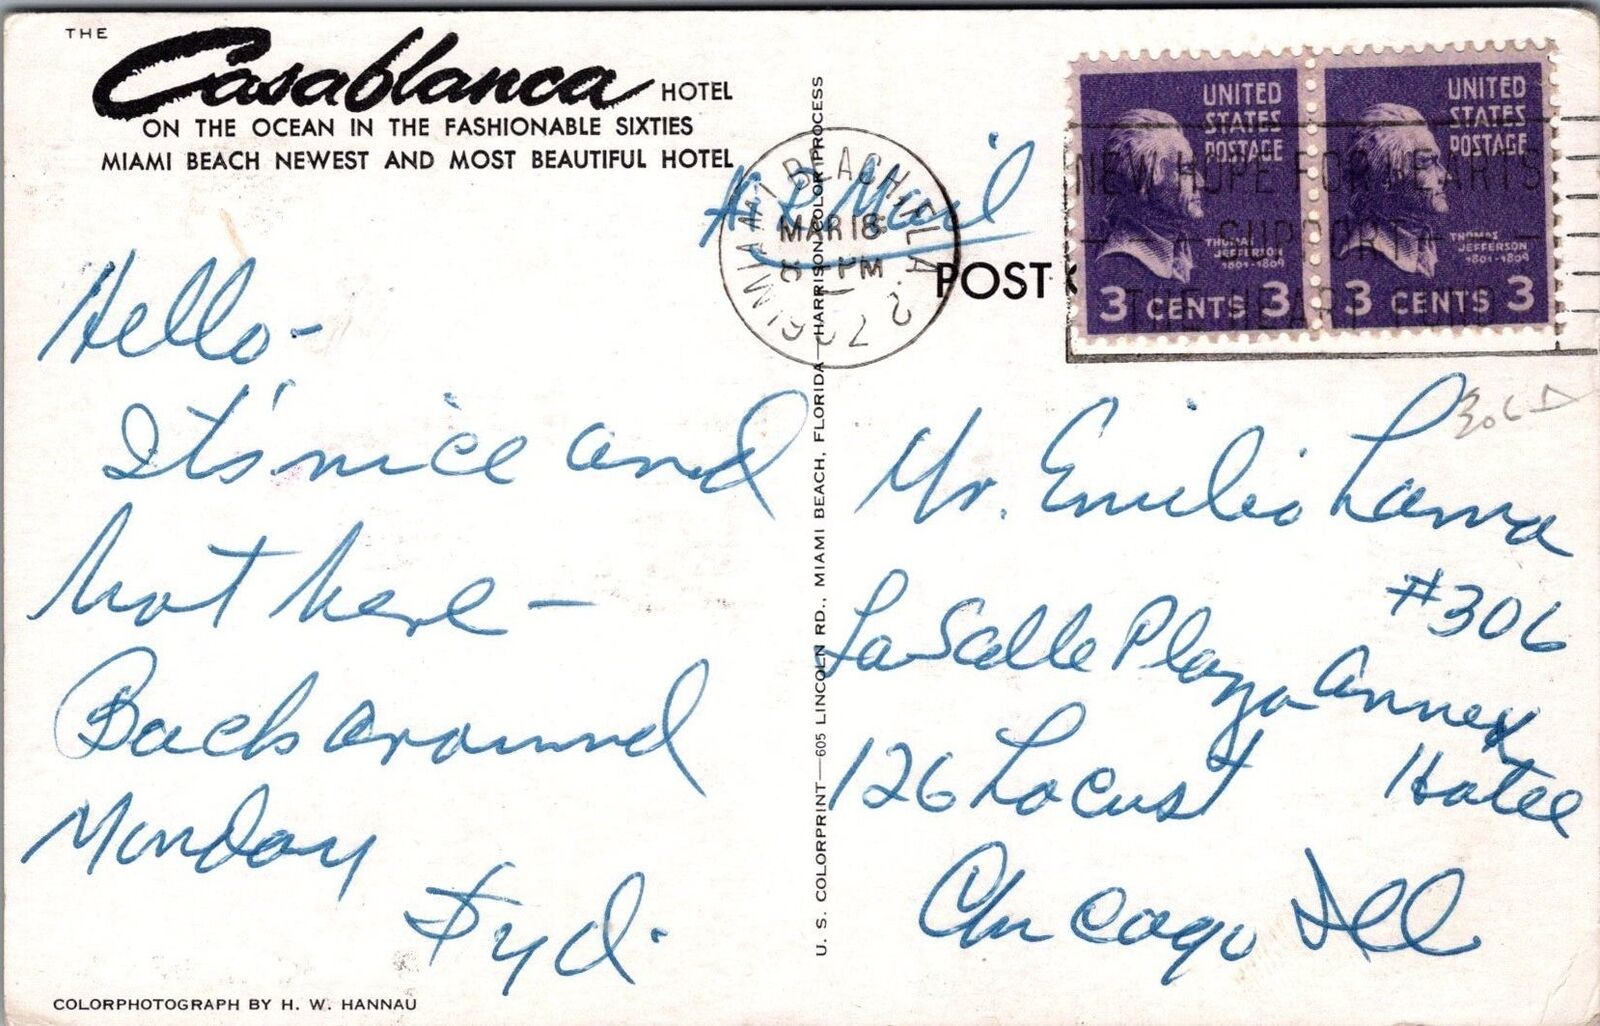 THE
Casablanca HOTEL
ON THE OCEAN IN THE FASHIONABLE SIXTIES
MIAMI BEACH NEWEST AND MOST BEAUTIFUL HOTEL
Air Mail
MIAMI BEACH, FLA. 2
MAR 18
PM
POST
UNITED STATES POSTAGE
THOMAS JEFFERSON
1801-1809
3 CENTS 3
UNITED STATES POSTAGE
THOMAS JEFFERSON
1801-1809
3 CENTS 3
NEW HOPE FOR HEARTS
SUPPORT
THE HEART FUND
Hello-
It's nice and
hot here —
Back around
Monday
Syd.
306
Mr. Emilio Lama
#306
LaSalle Plaza Annex
Hotel
126 Locust
Chicago Ill
U. S. COLORPRINT—605 LINCOLN RD., MIAMI BEACH, FLORIDA—HARRISON COLOR PROCESS
COLORPHOTOGRAPH BY H. W. HANNAU